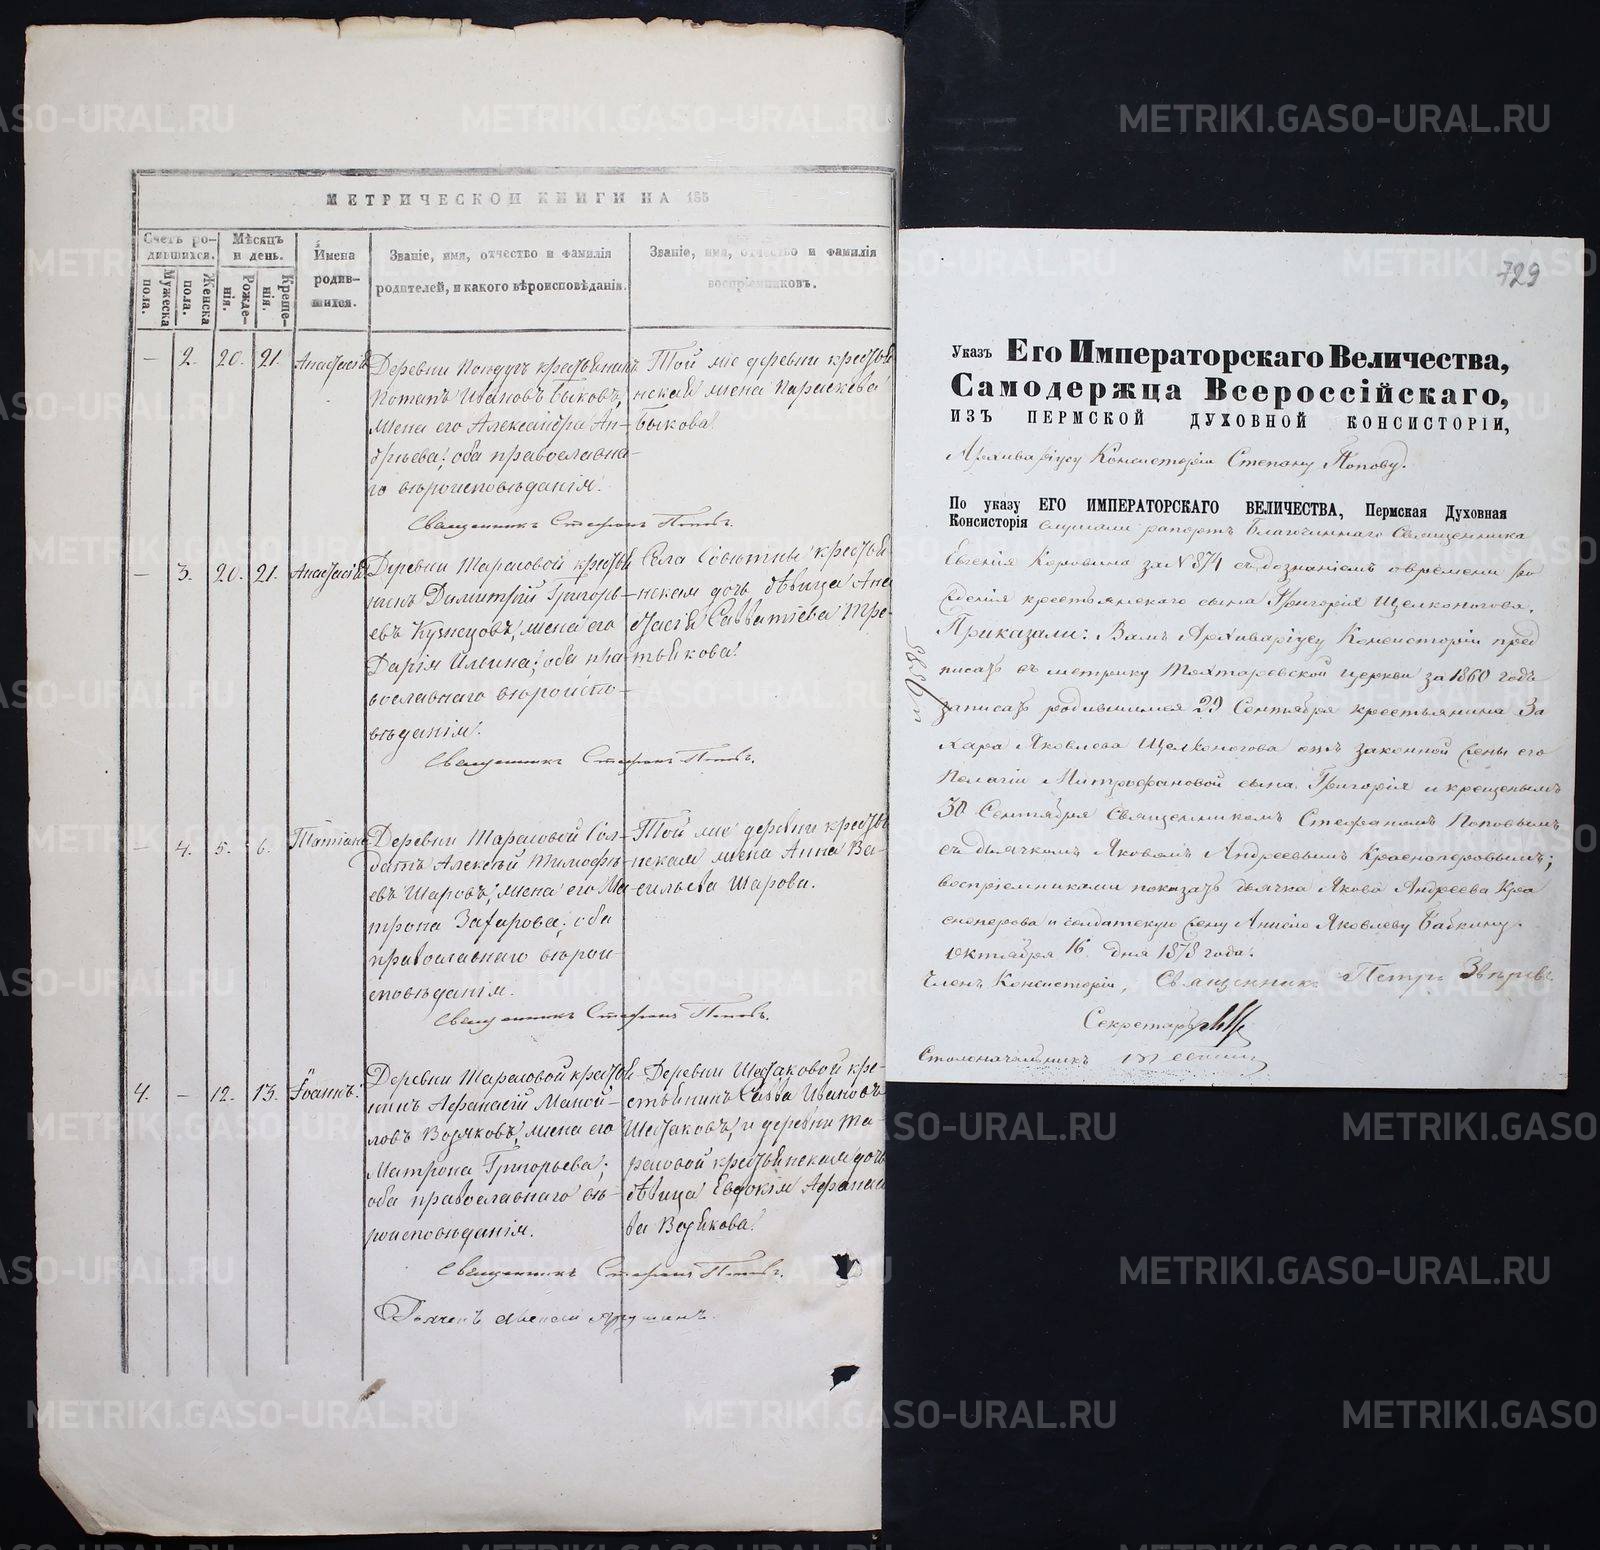 МЕТРИЧЕСКОЙ КНИГИ НА 185
Счетъ ро-
дившихся.
Мужеска
пола.
Женска
пола.
Мѣсяцъ
и день.
Рожде-
нія.
Креще-
нія.
Имена
родив-
шихся.
Званіе, имя, отчество и фамилія
родителей, и какого вѣроисповѣданія.
Званіе, имя, отчество и фамилія
воспріемниковъ.
— 2. 20. 21. Анастасія
Деревни крестьянинъ
Потапъ Ивановъ Быковъ,
жена его Александра Ан-
дрѣева; оба православна-
го вѣроисповѣданія.
Той же деревни кресть
нская жена Параскева
Быкова.
Священникъ Стефанъ Поповъ.
— 3. 20. 21. Анастасія
Деревни Тарасовой кресть
нинъ Димитрій Григорь-
евъ Кузнецовъ, жена его
Дарія Ильина; оба пра-
вославнаго вѣроиспо-
вѣданія.
Села кресть
нская дочь дѣвица Ана
стасія Савватіева Тре-
тьякова.
Священникъ Стефанъ Поповъ.
— 4. 5. 6. Татіана
Деревни Тарасовой Сол-
датъ Алексѣй Тимофѣ-
евъ Шаровъ, жена его Ма
трона Захарова; оба
православнаго вѣрои-
сповѣданія.
Той же деревни кресть
нская жена Анна Ва-
сильева Шарова.
Священникъ Стефанъ Поповъ.
4. — 12. 13. Іоаннъ.
Деревни Тарасовой кресть
нинъ Афанасій Маной-
ловъ Возяковъ, жена его
Матрона Григорьева;
оба православнаго вѣ-
роисповѣданія.
Деревни кре-
стьянинъ Савва Ивановъ
и деревни Та-
расовой крестьянская дочь
дѣвица Евдокія Афанась
ва Возякова.
Священникъ Стефанъ Поповъ.
Алексій
729
Указъ Его Императорскаго Величества,
Самодержца Всероссійскаго,
ИЗЪ ПЕРМСКОЙ ДУХОВНОЙ КОНСИСТОРІИ,
Архиваріусу Консисторіи Степану Попову.
По указу ЕГО ИМПЕРАТОРСКАГО ВЕЛИЧЕСТВА, Пермская Духовная
Консисторія слушали рапортъ Благочиннаго Священника
Евгенія Коровина за № 874 съ дознаніемъ о времени ро
жденія крестьянскаго сына Григорія Щелконогова.
Приказали: Вамъ Архиваріусу Консисторіи пред
писать въ метрику Тохтаревской церкви за 1860 годъ
записать родившимся 29 Сентября крестьянина За
хара Яковлева Щелконогова отъ законной жены его
Пелагіи Митрофановой сына Григорія и крещенымъ
30 Сентября Священникомъ Стефаномъ Поповымъ
съ дьячкомъ Яковомъ Андреевымъ Красноперовымъ;
воспріемниками показать дьячка Якова Андреева Кра
сноперова и солдатскую жену Анисію Яковлеву Бабкину.
Октября 16 дня 1878 года.
Членъ Консисторіи, Священникъ Петръ Звѣревъ
Секретарь
Столоначальникъ
METRIKI.GASO-URAL.RU